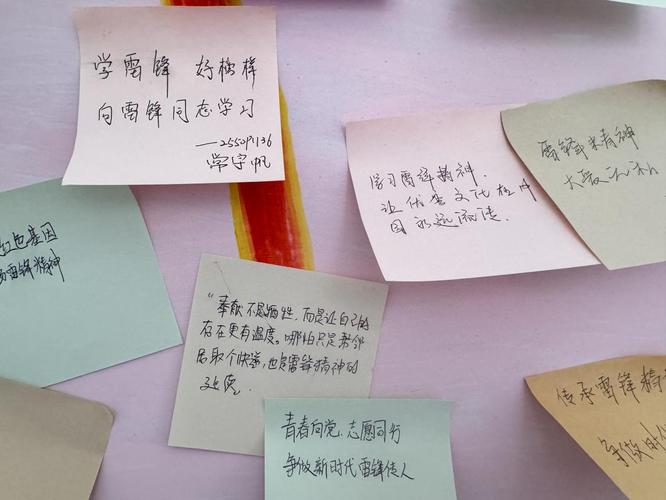 学雷锋 好榜样
向雷锋同志学习
——25509136
常宇帆
学习雷锋精神,
让优秀文化在中
国永远流传.
雷锋精神
大爱无私
红色基因
雷锋精神
"奉献不是牺牲,而是让自己的
存在更有温度。哪怕只是帮邻
居取个快递,也是雷锋精神的
延续.
青春向党,志愿同行
争做新时代雷锋传人
传承雷锋精
争做时代